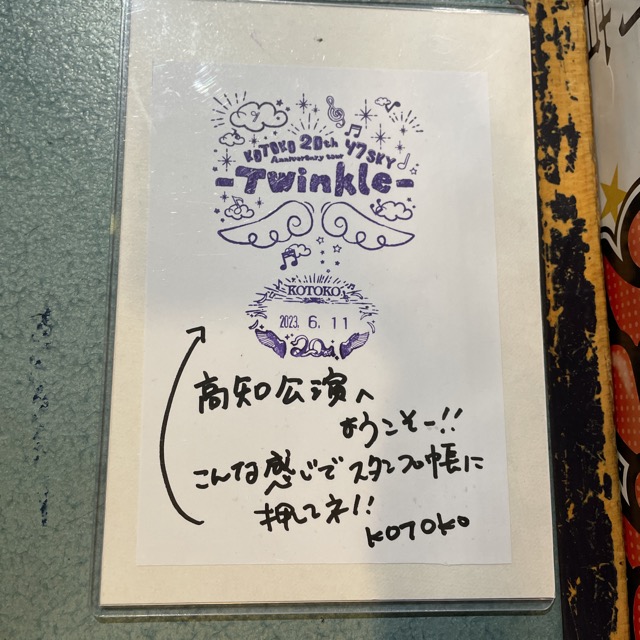 KOTOKO 20th 47SKY
Anniversary tour
-Twinkle-
KOTOKO
2023. 6. 11
20th
高知公演へ
ようこそー!!
こんな感じでスタンプ帳に
押してネ!!
KOTOKO